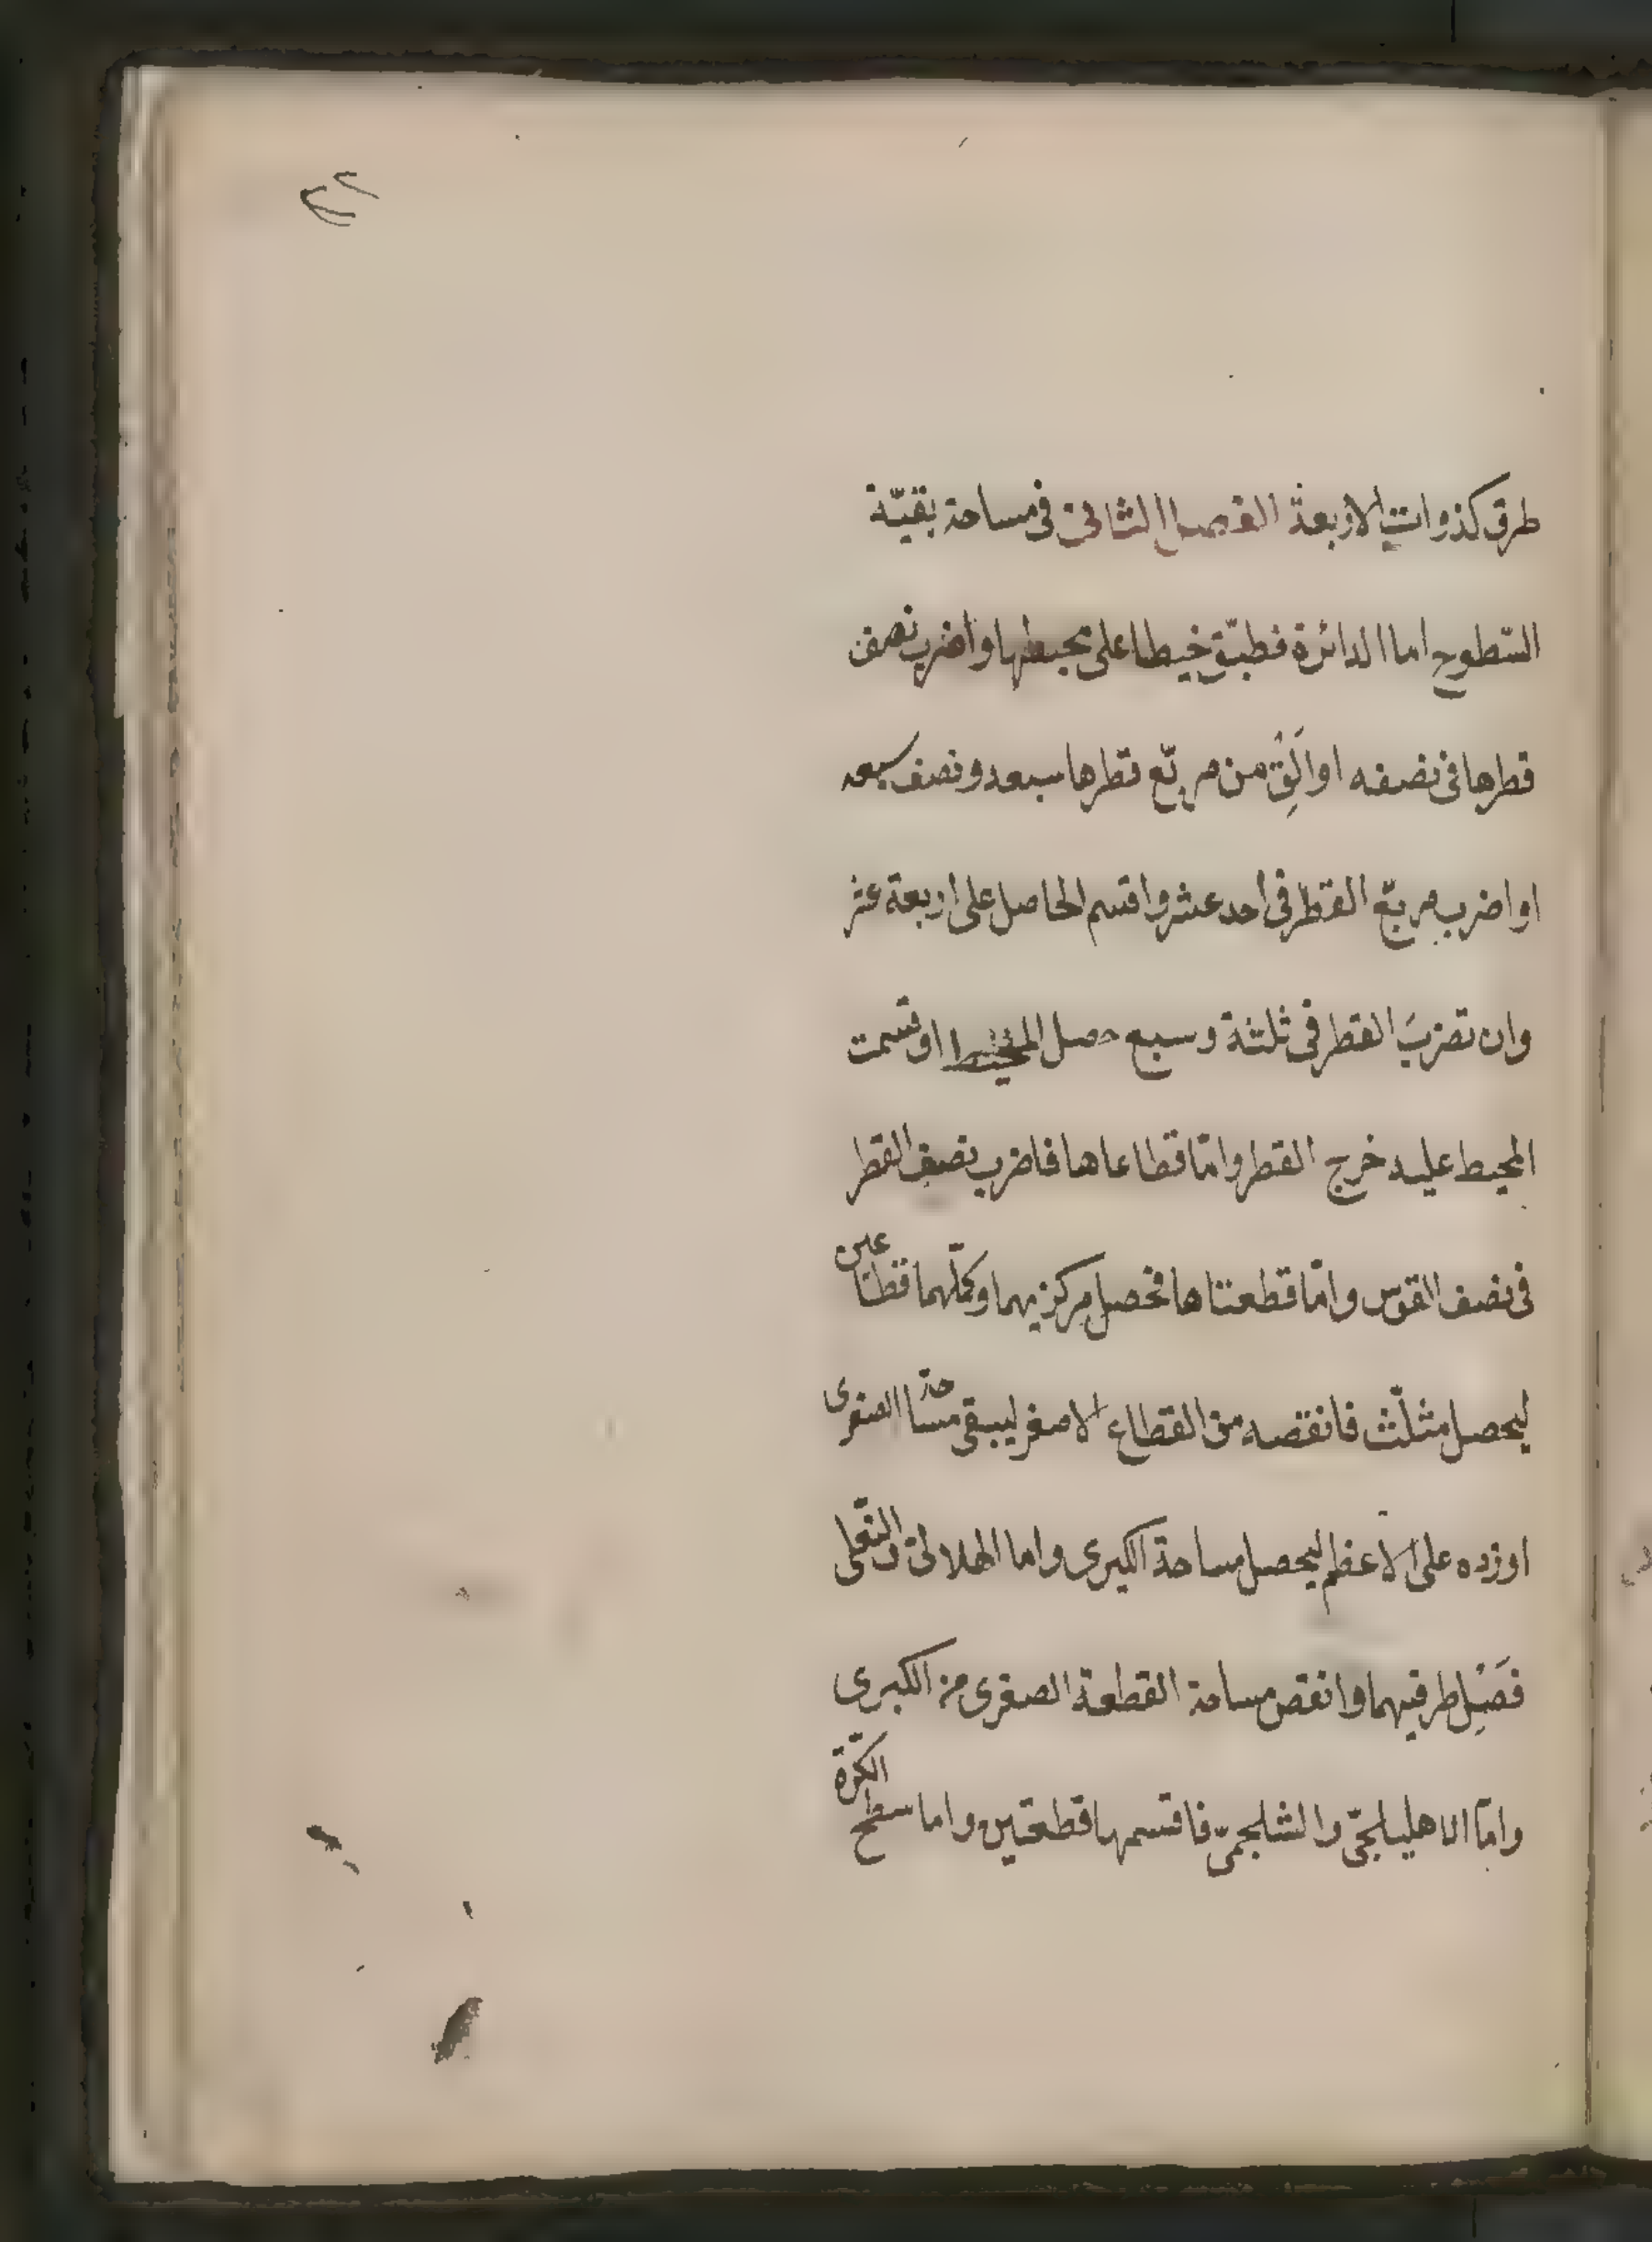 ٢٢
طرق كذوات الاربعة الفصل الثانى فى مساحة بقيّة
السّطوح اما الدائرة فطبّق خيطا على محيطها واضرب نصف
قطرها فى نصفه او الق من مربّع قطرها سبعه ونصف سبعه
او اضرب مربّع القطر فى احد عشر واقسم الحاصل على اربعة عشر
وان تضرب القطر فى ثلثة وسبع حصل المحيط او قسمت
المحيط عليه خرج القطر وامّا قطاعاها فاضرب نصف القطر
فى نصف القوس وامّا قطعتاها فحصل مركزيهما وكمّلهما قطاعين
ليحصل مثلّث فانقصه من القطاع الاصغر ليبقى مساحة الصغرى
او زده على الاعظم ليحصل مساحة الكبرى واما الهلالى والنّعلى
فَصِل طرفيهما وانقص مساحة القطعة الصغرى من الكبرى
وامّا الاهليلجىّ والشلجمىّ فاقسمهما قطعتين واما سطح الكرّة